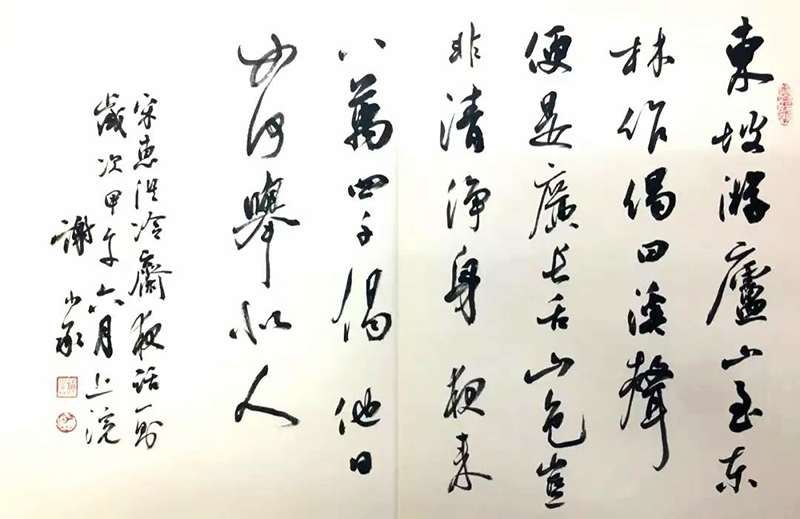 東坡游廬山至东
林作偈曰溪聲
便是廣長舌山色豈
非清淨身夜来
八萬四千偈他日
如何舉似人
宋惠洪冷齋夜話一則
歲次甲午六月上浣
謝